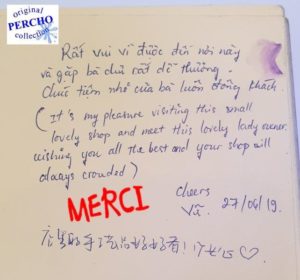 original
PERCHO
collection
Rất vui vì được đến nơi này
và gặp bà chủ rất dễ thương.
Chúc tiệm nhỏ của bà luôn đông khách.
( It's my pleasure visiting this small
lovely shop and meet this lovely lady owner.
wishing you all the best and your shop will
always crowded )
MERCI
Cheers
Vũ. 27/04/19.
的手 品好好看! ♡